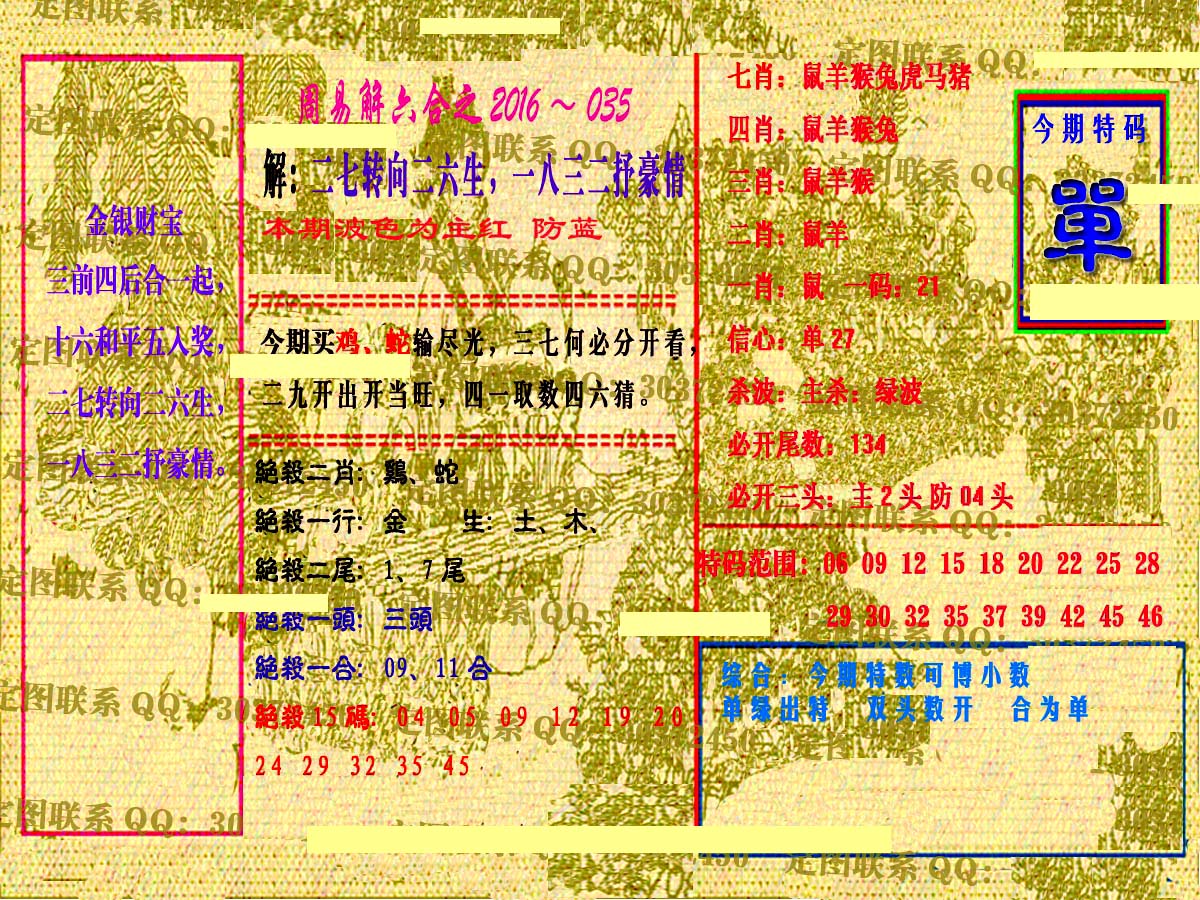 金银财宝
三前四后合一起，
十六和平五入奖，
二七转向二六生，
一八三二抒豪情。
周易解六合之 2016 ～ 035
解：二七转向二六生，一八三二抒豪情
本期波色为主红 防蓝
今期买鸡、蛇输尽光，三七何必分开看，
二九开出开当旺，四一取数四六猜。
絕殺二肖：鷄、蛇
絕殺一行：金 生：土、木、
絕殺二尾：1、7 尾
絕殺一頭：三頭
絕殺一合：09、11 合
絕殺 15 碼：04 05 09 12 19 20
24 29 32 35 45
七肖：鼠羊猴兔虎马猪
四肖：鼠羊猴兔
三肖：鼠羊猴
二肖：鼠羊
一肖：鼠 一码：21
信心：单 27
杀波：主杀：绿波
必开尾数：134
必开三头：主 2 头 防 04 头
今期特码
單
特码范围：06 09 12 15 18 20 22 25 28
29 30 32 35 37 39 42 45 46
综合：今期特数可博小数
单绿出特 双头数开 合为单